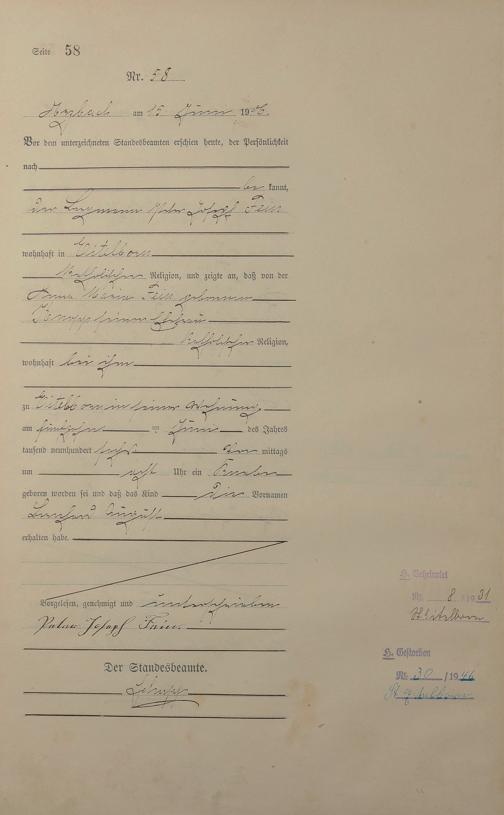 Seite 58
Nr. 58
Horbach am 15 Juni 1906.
Vor dem unterzeichneten Standesbeamten erschien heute, der Persönlichkeit
nach
be kannt,
der Bergmann Peter Joseph Fein
wohnhaft in Eitelborn
katholischer Religion, und zeigte an, daß von der
Anna Maria Fein geborenen
seiner Ehefrau
katholischer Religion,
wohnhaft bei ihm
zu Eitelborn in seiner Wohnung
am fünfzehn ten Juni des Jahres
tausend neunhundert sechs mittags
um acht Uhr ein Knabe
geboren worden sei und daß das Kind die Vornamen
August
erhalten habe.
Vorgelesen, genehmigt und unterschrieben
Peter Joseph Fein
Der Standesbeamte.
H. Geheiratet
Nr. 8 /1931
St. Eitelborn
H. Gestorben
Nr. 30 / 1946
St.